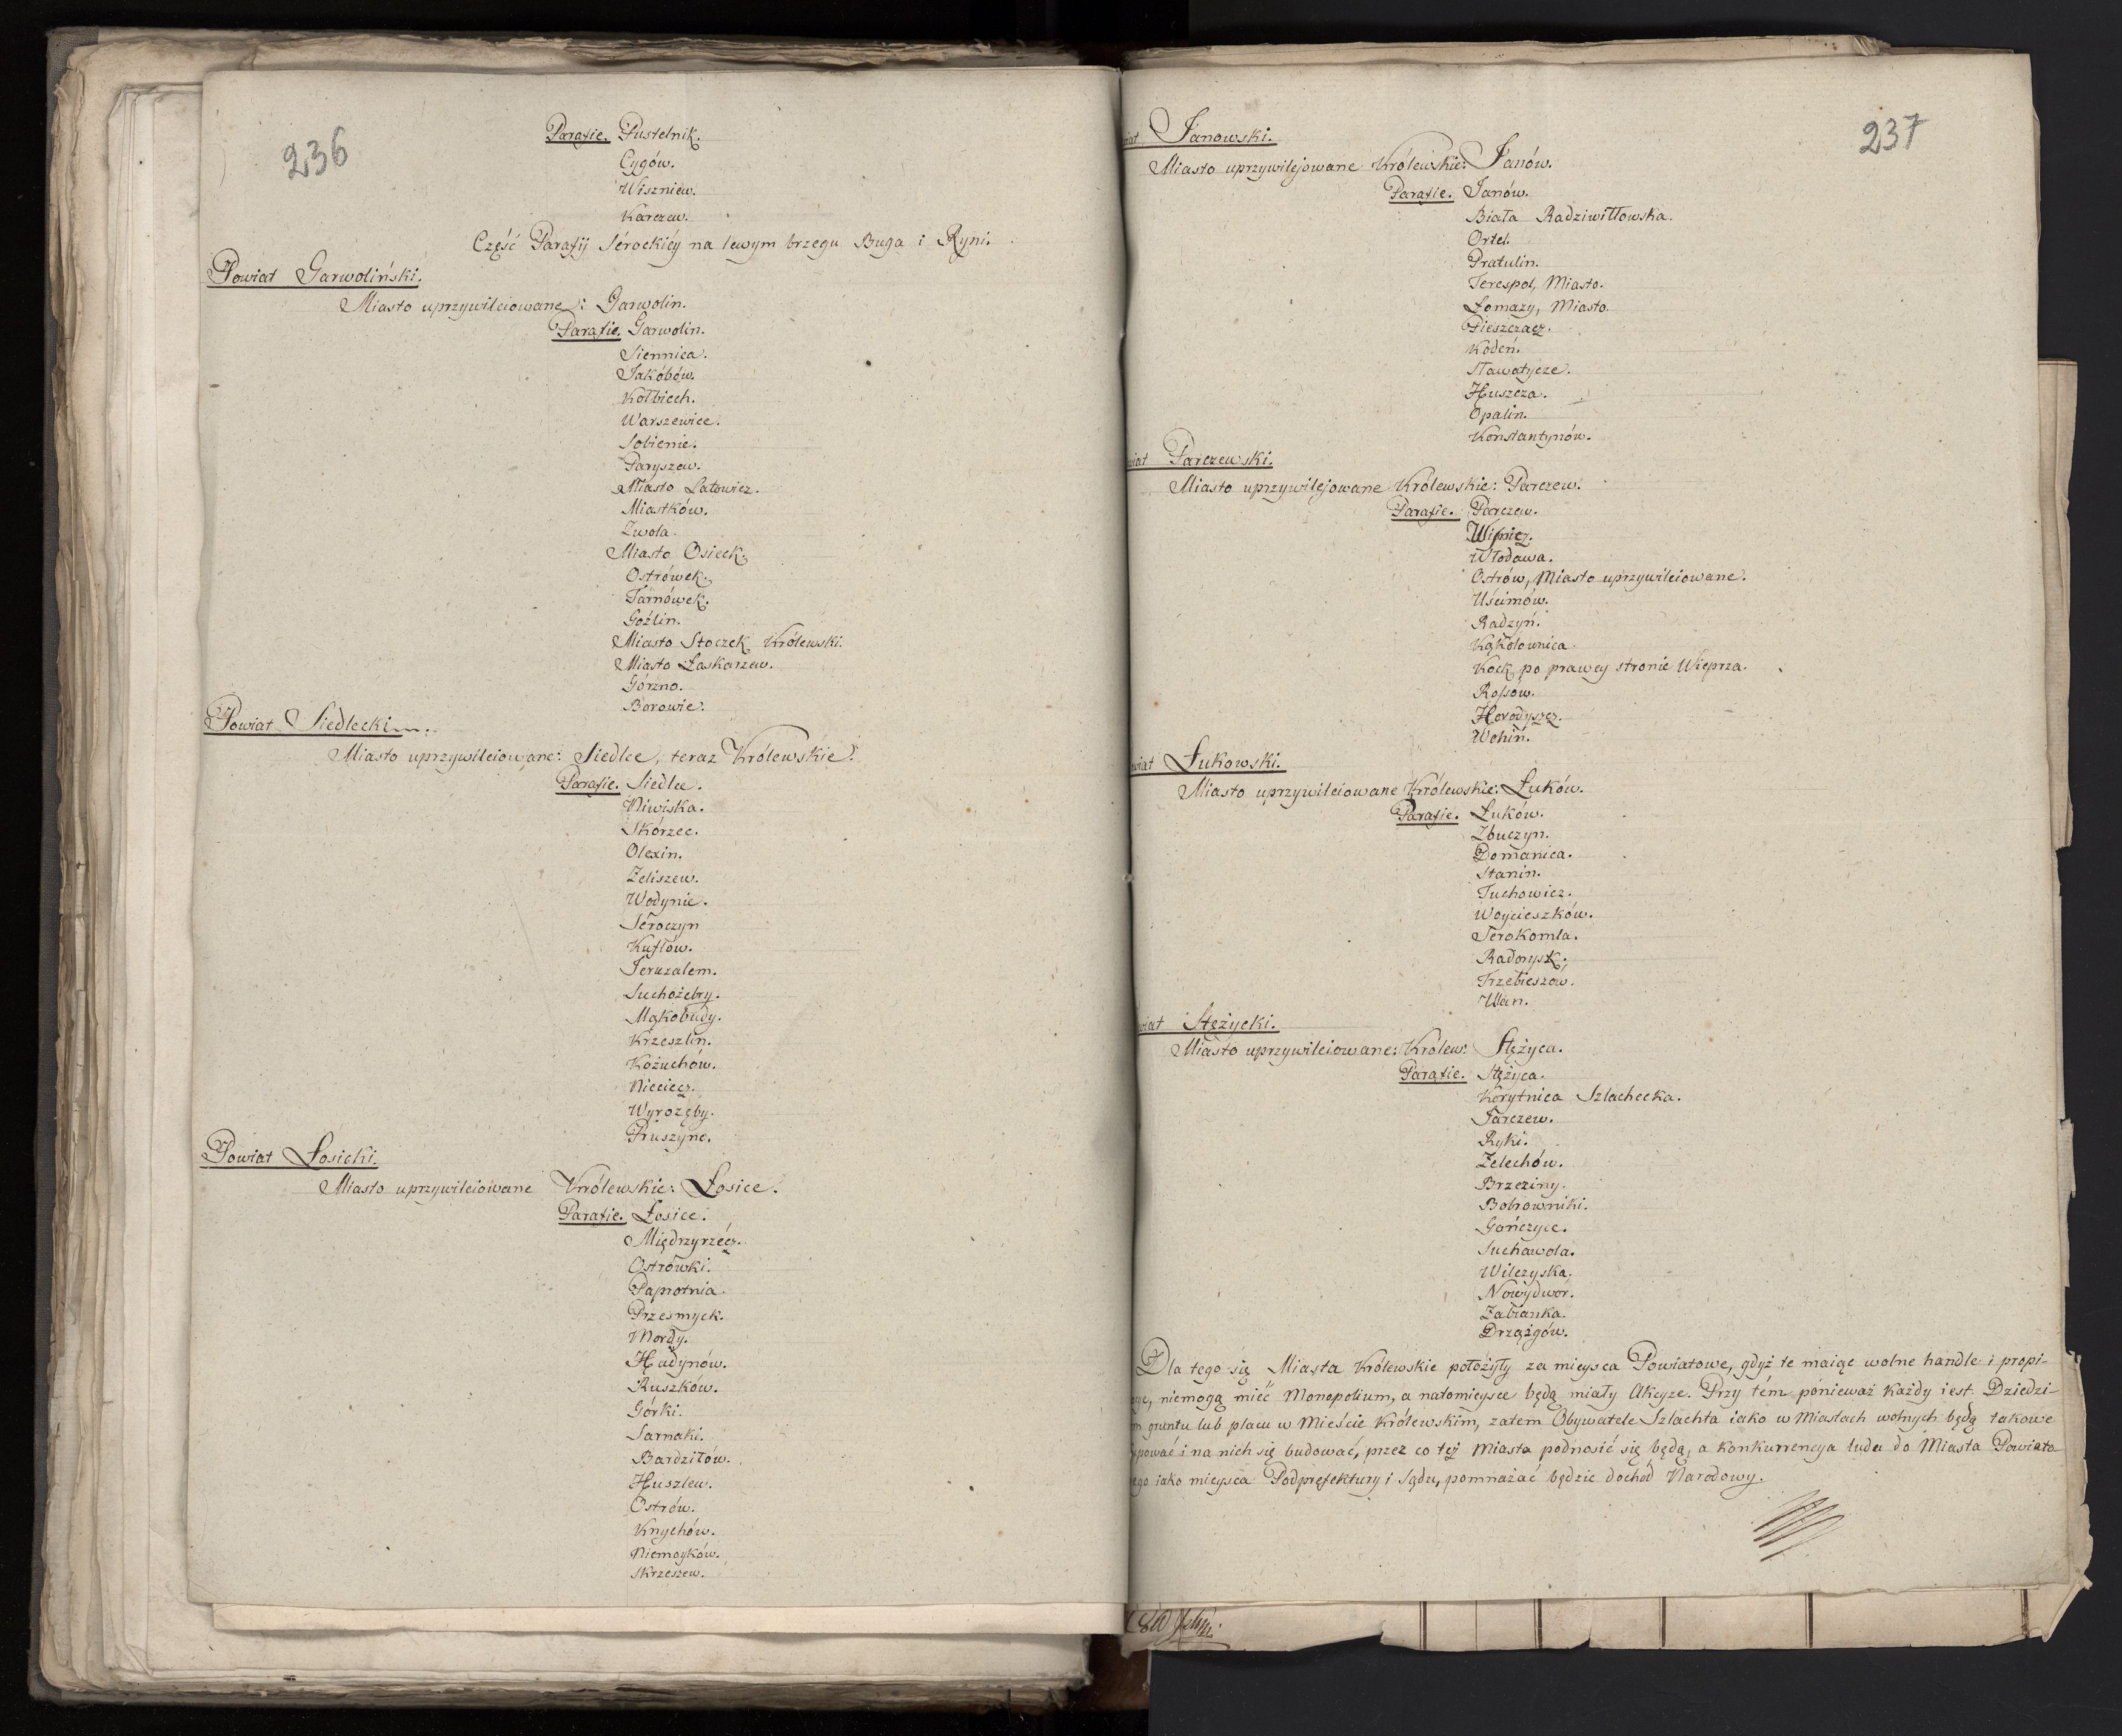 236
Parafie. Pustelnik.
Cygów.
Wiszniew.
Karczew.
Część Parafij Sérockiéy na lewym brzegu Buga i Ryni.
Powiat Garwoliński.
Miasto uprzywileiowane: Garwolin.
Parafie. Garwolin.
Siennica.
Jakóbów.
Kołbiech.
Warszewice.
Sobienie.
Paryszew.
Miasto Latowicz.
Miastków.
Zwola.
Miasto Osieck.
Ostrówek.
Tarnówek.
Goźlin.
Miasto Stoczek Królewski.
Miasto Łaskarzew.
Górzno.
Borowie.
Powiat Siedlecki
Miasto uprzywileiowane: Siedlce, teraz Królewskie.
Parafie. Siedlce.
Niwiska.
Skórzec.
Olexin.
Żeliszew.
Wodynie.
Séroczyn
Kuflów.
Jeruzalem.
Suchożebry.
Mąkobudy.
Krzeszlin.
Kożuchów.
Nieciecz.
Wyrozęby.
Pruszyne.
Powiat Łosicki.
Miasto uprzywileiowane Królewskie: Łosice.
Parafie. Łosice.
Międrzyrzécz.
Ostrówki.
Paprotnia.
Przesmyck.
Mordy.
Hadynów.
Ruszków.
Górki.
Sarnaki.
Bardziłów.
Huszlew.
Ostrów.
Knychów.
Niemoyków.
Skrzeszew.
237
Janowski.
Miasto uprzywilejowane Królewskie: Janów.
Parafie. Janów.
Biała Radziwiłłowska.
Ortel.
Pratulin.
Terespol, Miasto.
Łomazy, Miasto.
Pieszczacz.
Kodeń.
Sławatycze.
Huszcza.
Opalin.
Konstantynów.
Parczewski.
Miasto uprzywilejowane Królewskie: Parczew.
Parafie. Parczew.
Włodawa.
Ostrów, Miasto uprzywileiowane.
Uścimów.
Radzyń.
Kąkolownica.
Kock po prawey stronie Wieprza.
Rossów.
Horodyszcz.
Wohiń.
Łukowski.
Miasto uprzywileiowane Królewskie: Łuków.
Parafie. Łuków.
Zbuczyn.
Domanica.
Stanin.
Tuchowicz.
Woycieszków.
Serokomla.
Radorysk.
Trzebieszow.
Ulan.
Stężycki.
Miasto uprzywileiowane: Królew: Stężyca.
Parafie. Stężyca.
Korytnica Szlachecka.
Jarczew.
Ryki.
Żelechów.
Brzeziny.
Bobrowniki.
Gończyce.
Suchawola.
Wilczyska.
Nowydwór.
Żabianka.
Drzążgów.
Dla tego się Miasta Królewskie położyły za mieysca Powiatowe, gdyż te maiąc wolne handle i propi-
niemogą mieć Monopolium, a natomieysce będą miały Akcyze. Przy tém ponieważ każdy iest Dziedzi-
gruntu lub placu w Mieście Królewskim, zatem Obywatele Szlachta iako w Miastach wolnych będą takowe
i na nich się budować, przez co też Miasta podnosić się będą, a konkurrencya ludu do Miasta Powiato
iako mieysca Podprefektury i Sądu, pomnażać będzie dochód Narodowy.